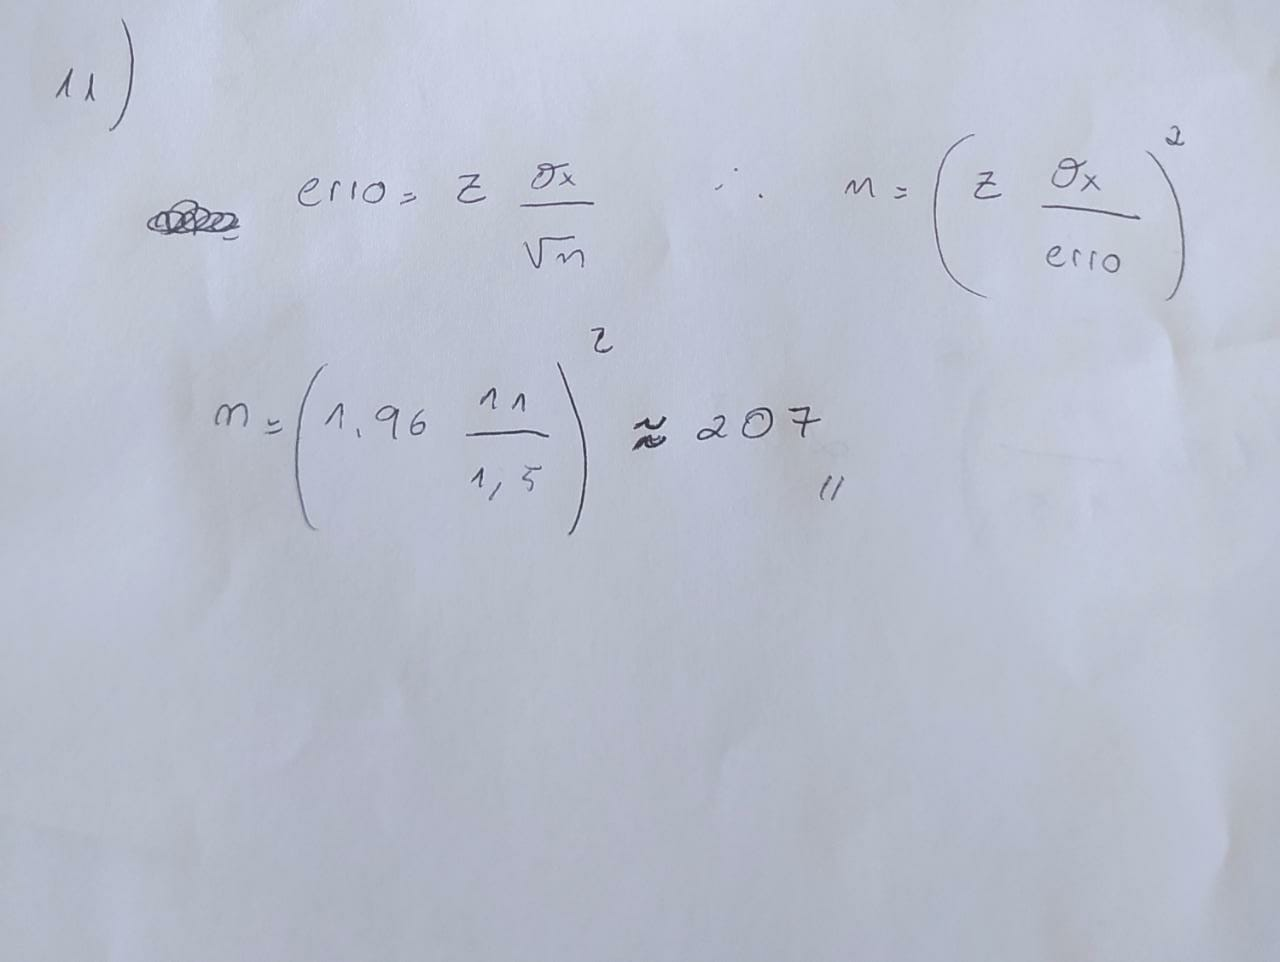 11)
erro = z σx/√n ∴ n = (z σx/erro)²
n = (1,96 11/1,5)² ≈ 207 //